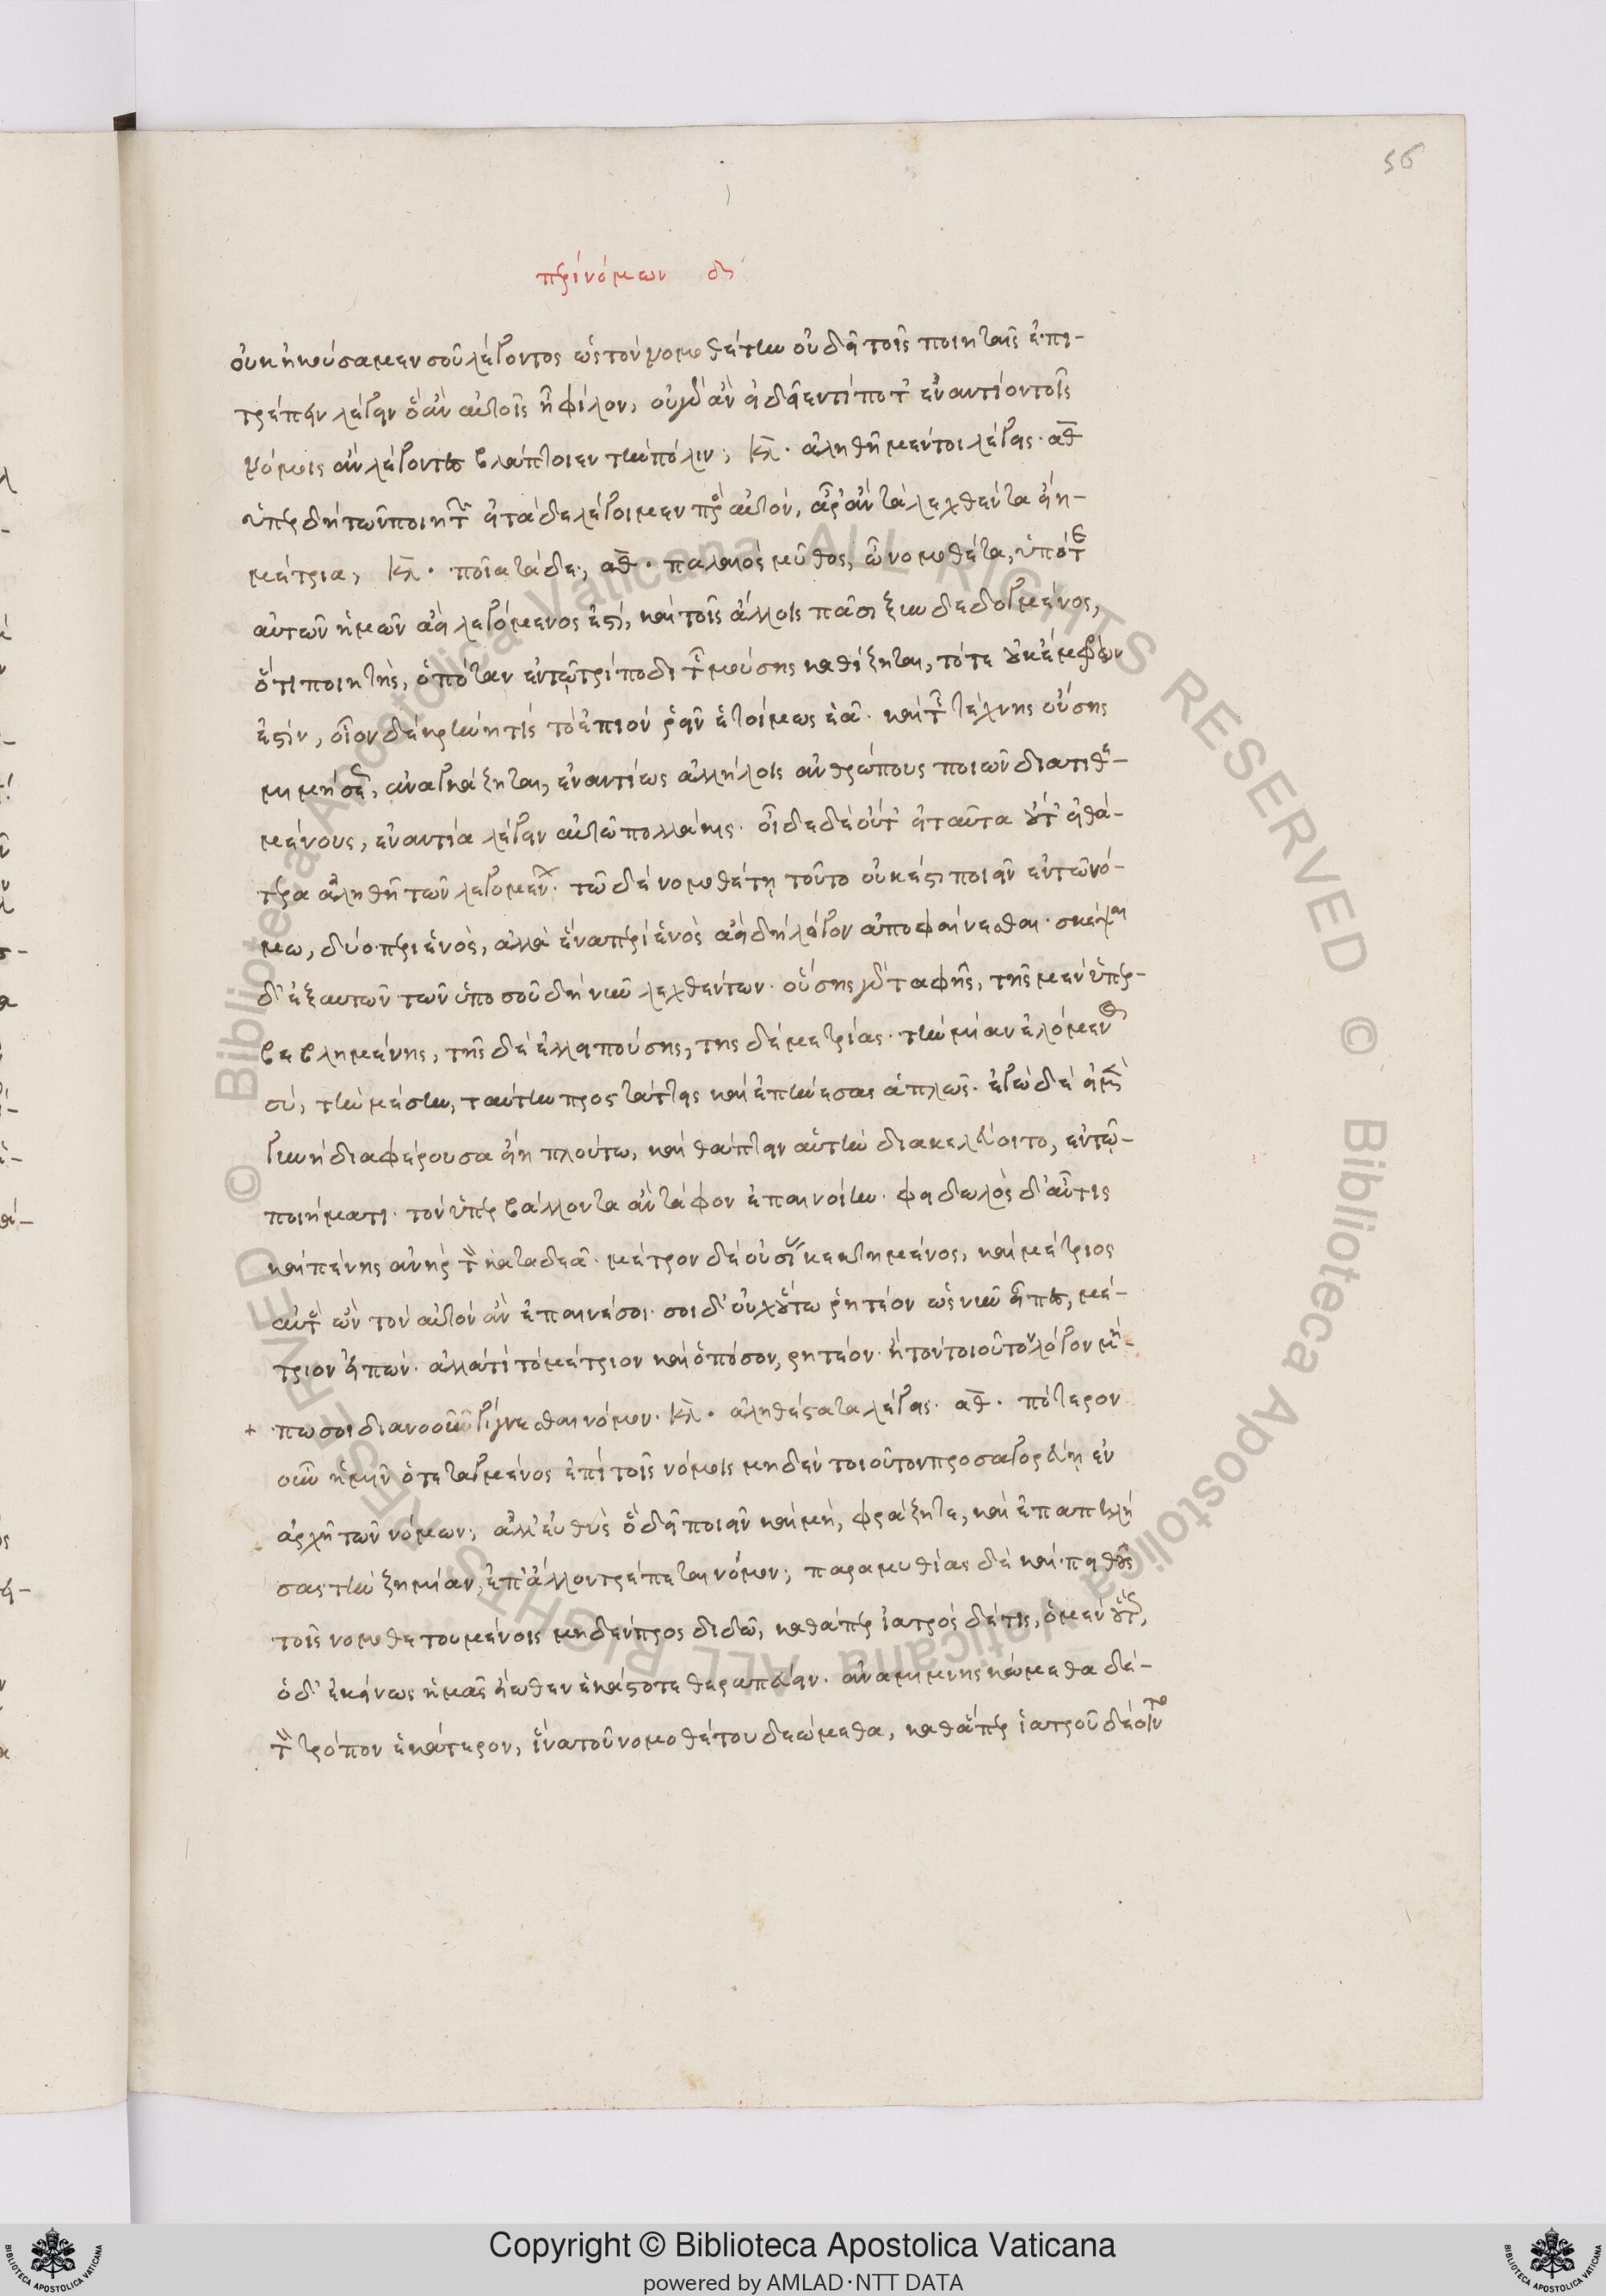 56
περὶ νόμων δ´
οὐκ ἠκούσαμεν σοῦ λέγοντος ὡς τὸν νομοθέτην οὐ δεῖ τοῖς ποιηταῖς ἐπι-
τρέπειν λέγειν ὃ ἂν αὐτοῖς ᾖ φίλον, οὐ γὰρ ἂν εἰδεῖεν τί ποτ' ἐναντίον τοῖς
νόμοις ἂν λέγοντες βλάπτοιεν τὴν πόλιν; κλ. ἀληθῆ μέντοι λέγεις. αθ
ὑπὲρ δὴ τῶν ποιητῶν εἰ τάδε λέγοιμεν πρὸς αὐτόν, ἆρ' ἂν τὰ λεχθέντα εἴη
μέτρια; κλ. ποῖα τάδε; αθ. παλαιὸς μῦθος, ὦ νομοθέτα, ὑπό τε
αὐτῶν ἡμῶν ἀεὶ λεγόμενός ἐστι, καὶ τοῖς ἄλλοις πᾶσι ξυνδεδογμένος,
ὅτι ποιητής, ὁπόταν ἐν τῷ τρίποδι τῆς μούσης καθίζηται, τότε οὐκ ἔμφρων
ἐστίν, οἷον δὲ κρήνη τις τὸ ἐπιὸν ῥεῖν ἑτοίμως ἐᾷ. καὶ τῆς τέχνης οὔσης
μιμήσεως, ἀναγκάζεται, ἐναντίως ἀλλήλοις ἀνθρώπους ποιῶν διατιθε-
μένους, ἐναντία λέγειν αὑτῷ πολλάκις. οἶδε δὲ οὔτ' εἰ ταῦτα οὔτ' εἰ θά-
τερα ἀληθῆ τῶν λεγομένων. τῷ δὲ νομοθέτῃ τοῦτο οὐκ ἔστι ποιεῖν ἐν τῷ νό-
μῳ, δύο περὶ ἑνός, ἀλλὰ ἕνα περὶ ἑνὸς ἀεὶ δεῖ λόγον ἀποφαίνεσθαι. σκέψαι
δ' ἐξ αυτῶν τῶν ὑπὸ σοῦ δὴ νῦν λεχθέντων. οὔσης γὰρ ταφῆς, τῆς μὲν ὑπερ-
βεβλημένης, τῆς δὲ ἐλλειπούσης, της δὲ μετρίας. τὴν μίαν ἑλόμενος
σύ, τὴν μέσην, ταύτην προστάττεις καὶ ἐπῄνεσας ἁπλῶς. ἐγὼ δὲ εἰ μὲν
γυνὴ διαφέρουσα εἴη πλούτῳ, καὶ θάπτειν αὑτὴν διακελεύοιτο, ἐν τῷ
ποιήματι. τὸν ὑπερβάλλοντα ἂν τάφον ἐπαινοίην. φειδωλὸς δ' αὖ τις
καὶ πένης ἀνὴρ τὸν καταδεᾶ. μέτρον δὲ οὐσίας κεκτημένος, καὶ μέτριος
αὐτὸς ὢν τὸν αὐτὸν ἂν ἐπαινέσοι. σοὶ δ' οὐχ οὕτω ῥητέον ὡς νῦν εἶπες, μέ-
τριον εἰπών. ἀλλὰ τί τὸ μέτριον καὶ ὁπόσον, ρητέον. ἢ τὸν τοιοῦτον λόγον μή-
+ πω σοι διανοοῦ γίγνεσθαι νόμον. κλ. ἀληθέστατα λέγεις. αθ. πότερον
οὖν ἡμῖν ὁ τεταγμένος ἐπὶ τοῖς νόμοις μηδὲν τοιοῦτον προσαγορεύῃ ἐν
ἀρχῇ τῶν νόμων; ἀλλ' εὐθὺς ὃ δεῖ ποιεῖν καὶ μή, φράζῃ τε, καὶ ἐπαπειλή
σας τὴν ζημίαν, ἐπ' ἄλλον τρέπεται νόμον; παραμυθίας δὲ καὶ πειθοῦς
τοῖς νομοθετουμένοις μηδὲν προσδιδῷ, καθάπερ ἰατρὸς δέ τις, ὁ μὲν οὕτως,
ὁ δ' ἐκείνως ἡμᾶς εἴωθεν ἑκάστοτε θεραπεύειν. ἀναμιμνησκώμεθα δὲ
τὸν τρόπον ἑκάτερον, ἵνα τοῦ νομοθέτου δεώμεθα, καθάπερ ἰατροῦ δέοιντο
Copyright © Biblioteca Apostolica Vaticana
powered by AMLAD·NTT DATA